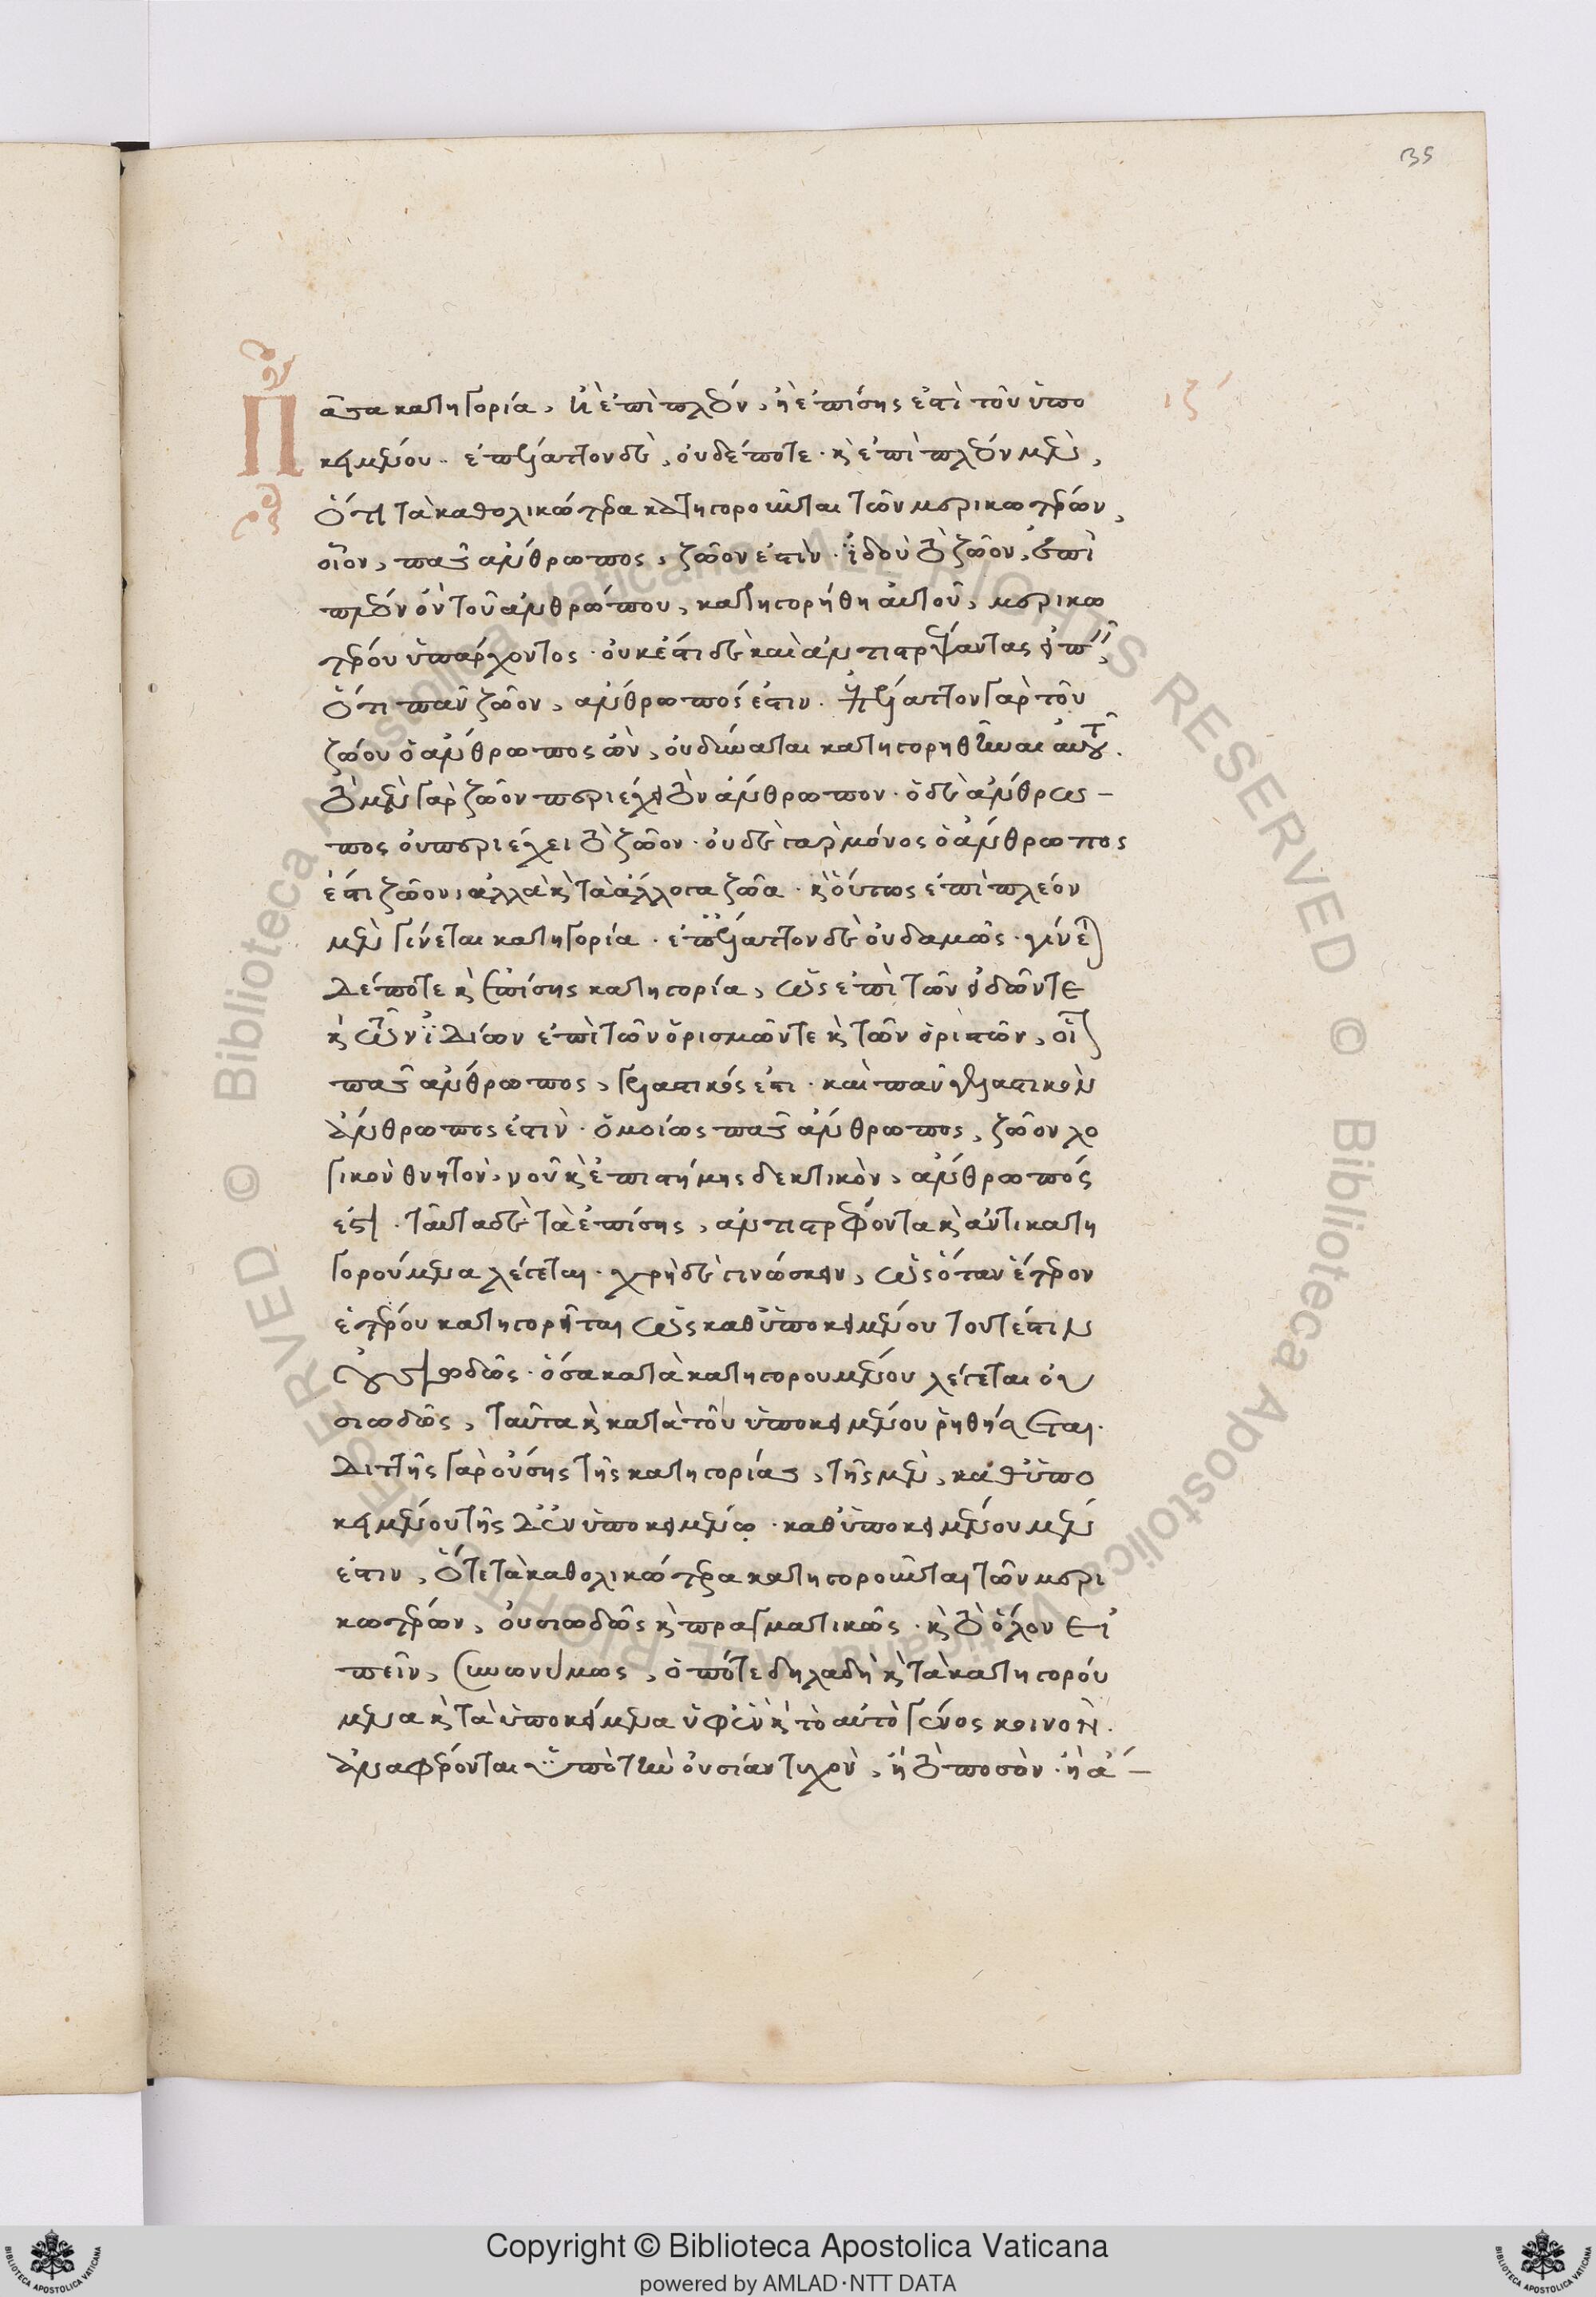 135
ιζʹ
Πᾶσα κατηγορία, ἢ ἐπὶ πλέον, ἢ ἐπίσης ἐστὶ τοῦ ὑπο
κειμένου· ἐπέλαττον δὲ, οὐδέποτε· κ̀ ἐπὶ πλέον μὲν,
ὅτι τὰ καθολικώτερα κατηγοροῦνται τῶν μερικωτέρων,
οἷον, πᾶς ἄνθρωπος, ζῶον ἐστὶν· ἰδοὺ τὸ ζῶον, ἐπὶ
πλέον ὂν τοῦ ἀνθρώπου, κατηγορήθη αὐτοῦ, μερικω
τέρου ὑπάρχοντος· οὐκέτι δὲ καὶ ἀντιστρέψαντας εἰπεῖν,
ὅτι πᾶν ζῶον, ἄνθρωπός ἐστιν· ἐπέλαττον γὰρ τοῦ
ζώου ὁ ἄνθρωπος ὢν, οὐ δύναται κατηγορηθῆναι αὐτοῦ.
τὸ μὲν γὰρ ζῶον περιέχει τὸν ἄνθρωπον· ὁ δὲ ἄνθρω-
πος οὐ περιέχει τὸ ζῶον· οὐδὲ γὰρ μόνος ὁ ἄνθρωπος
ἐστι ζῶον, ἀλλὰ κ̀ τὰ ἄλλογα ζῶα· κ̀ οὕτως ἐπὶ πλέον
μὲν γίνεται κατηγορία· ἐπέλαττον δὲ οὐδαμῶς· γίνεται
δέ ποτε κ̀ ἐπίσης κατηγορία, ὡς ἐπὶ τῶν εἰδῶν τε
κ̀ τῶν ἰδίων ἐπὶ τῶν ὁρισμῶν τε κ̀ τῶν ὁριστῶν, οἷον
πᾶς ἄνθρωπος, γελαστικός ἐστι· καὶ πᾶν γελαστικὸν
ἄνθρωπος ἐστὶν· ὁμοίως πᾶς ἄνθρωπος, ζῶον λο
γικὸν θνητὸν, νοῦ κ̀ ἐπιστήμης δεκτικὸν, ἄνθρωπός
ἐστι· ταῦτα δὲ τὰ ἐπίσης, ἀντιστρέφοντα κ̀ ἀντικατη
γορούμενα λέγεται· χρὴ δὲ γινώσκειν, ὡς ὅταν ἕτερον
ἑτέρου κατηγορῆται ὡς καθ' ὑποκειμένου τουτέστιν
οὐσιωδῶς· ὅσα κατὰ κατηγορουμένου λέγεται οὐ
σιωδῶς, ταῦτα κ̀ κατὰ τοῦ ὑποκειμένου ῥηθήσεται.
διττῆς γὰρ οὔσης τῆς κατηγορίας, τῆς μὲν, καθ' ὑπο
κειμένου τῆς δ' ἐν ὑποκειμένῳ· καθ' ὑποκειμένου μὲν
ἐστιν, ὅτε τὰ καθολικώτερα κατηγοροῦνται τῶν μερι
κωτέρων, οὐσιωδῶς κ̀ πραγματικῶς· κ̀ τὸ ὅλον εἰ
πεῖν, συνωνύμως, ὁπότε δηλαδὴ κ̀ τὰ κατηγορού
μενα κ̀ τὰ ὑποκείμενα ὑφ' ἓν κ̀ τὸ αὐτὸ γένος κοινὸν.
ἀναφέρονται ὑπὸ τὴν οὐσίαν τυχὸν, ἢ τὸ ποσὸν· ἢ ἄ-
Copyright © Biblioteca Apostolica Vaticana
powered by AMLAD·NTT DATA